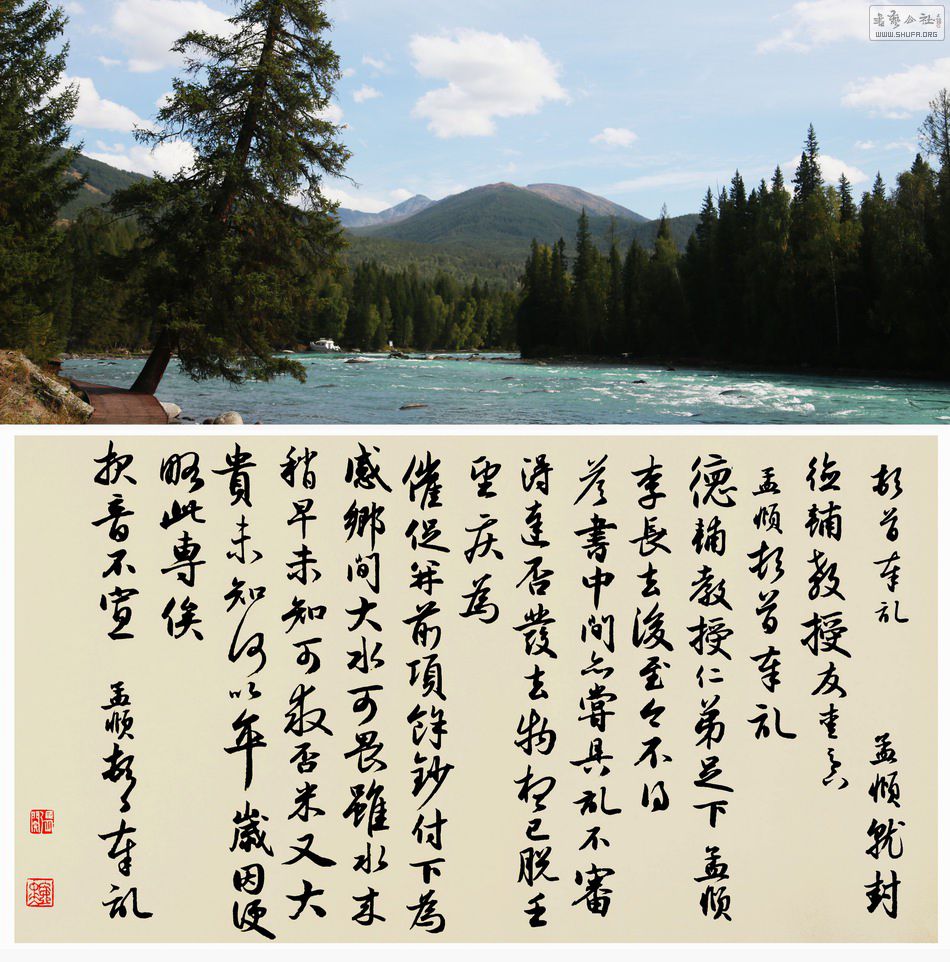 书艺公社
WWW.SHUFA.ORG
頓首奉記 孟頫就封
德輔教授友
孟頫頓首奉記
德輔教授仁弟足下 孟頫
李長去後至今不得
答書中間亦嘗具記不審
得達否發去物想已脫
望疾為
催促并前項餘鈔付下為
感鄉間大水可畏雖水來
稍早未知可救否米又大
貴未知何以年歲因便
略此專俟
報音不宣 孟頫頓首奉記